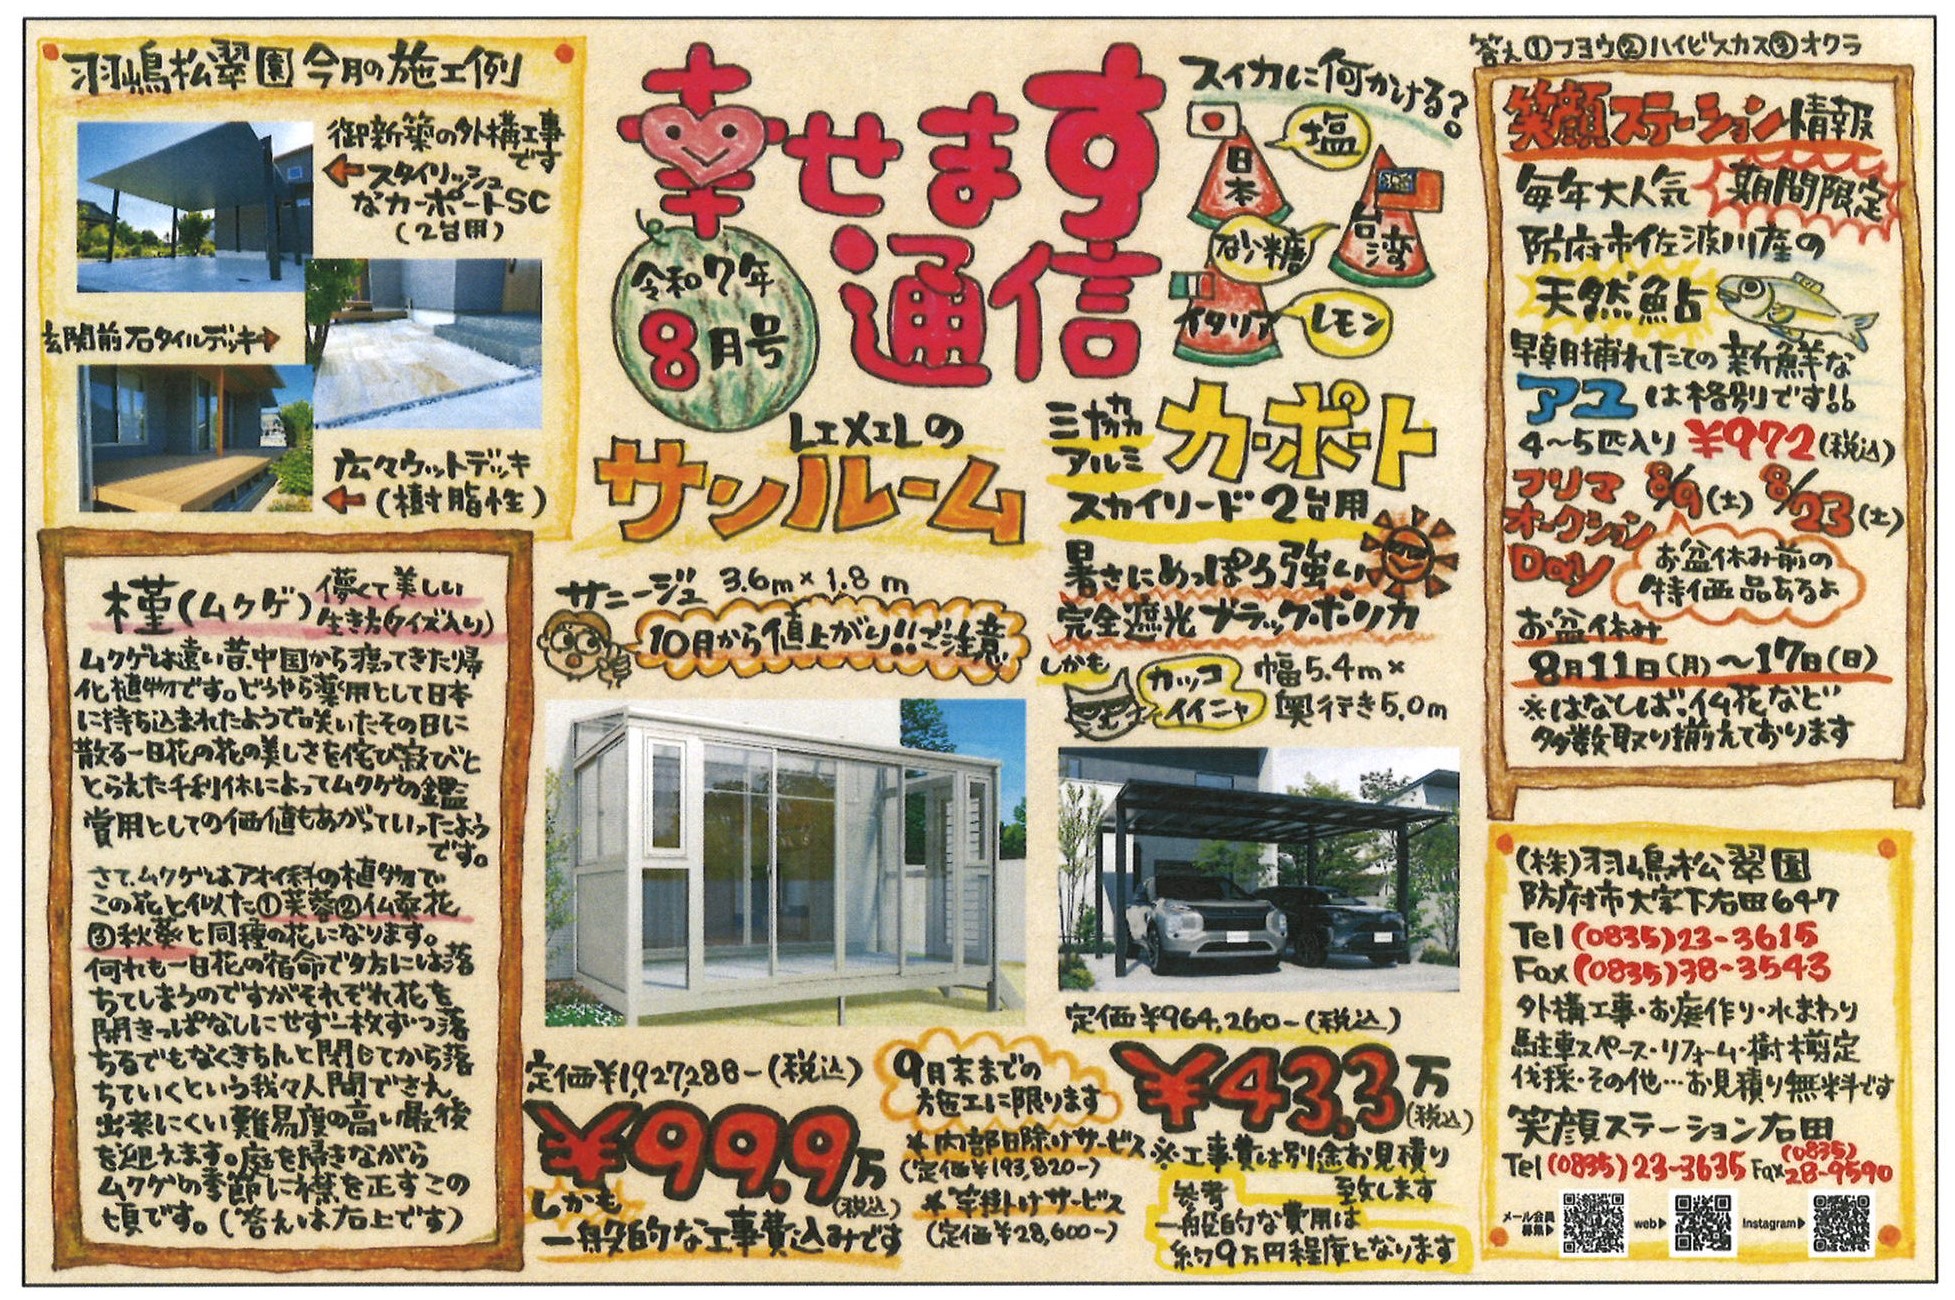 羽嶋松翠園 今月の施工例
御新築の外構工事
です
←スタイリッシュ
なカーポートSC
(2台用)
玄関前石タイルデッキ→
広々ウットデッキ
←(樹脂性)
槿(ムクゲ)儚くて美しい
生き方(クイズ入り)
ムクゲは遠い昔、中国から渡ってきた帰
化植物です。どうやら薬用として日本
に持ち込まれたようで咲いたその日に
散る一日花の花の美しさを侘び寂びと
とらえた千利休によってムクゲの鑑
賞用としての価値もあがっていったよう
です。
さて、ムクゲはアオイ科の植物で
この花と似た①芙蓉②仏桑花
③秋葵と同種の花になります。
何れも一日花の宿命で夕方には落
ちてしまうのですがそれぞれ花を
開きっぱなしにせず一枚ずつ落
ちるでもなくきちんと閉じてから落
ちていくという我々人間でさえ
出来にくい難易度の高い最後
を迎えます。庭を掃きながら
ムクゲの季節に襟を正すこの
頃です。(答えは右上です)
幸せます
通信
令和7年
8月号
スイカに何かける?
日本
塩
台湾
なし糖
イタリア
レモン
LIXILの
サンルーム
サニージュ 3.6m×1.8m
10月から値上がり!!ご注意
定価¥1,927,288-(税込)
¥99.9万
(税込)
しかも
一般的な工事費込みです
9月末までの
施工に限ります
*内部日除けサービス
(定価¥193,820-)
*竿掛けサービス
(定価¥28,600-)
三協
アルミ
カーポート
スカイリード2台用
暑さにめっぽう強い
完全遮光ブラックポリカ
しかも
カッコ
イイニャ
幅5.4m×
奥行き5.0m
定価¥964,260-(税込)
¥43.3万
(税込)
※工事費は別途お見積り
致します
参考
一般的な費用は
約9万円程度となります
答え①フヨウ②ハイビスカス③オクラ
笑顔ステーション情報
毎年大人気 期間限定
防府市佐波川産の
天然鮎
早朝捕れたての新鮮な
アユは格別です!!
4〜5匹入り ¥972(税込)
フリマ 8/9(土) 8/23(土)
オークション
Day
お盆休み前の
特価品あるよ
お盆休み
8月11日(月)〜17日(日)
※はなしば・仏花など
多数取り揃えております
(株)羽嶋松翠園
防府市大字下右田647
Tel(0835)23-3615
Fax(0835)38-3543
外構工事・お庭作り・水まわり
駐車スペース・リフォーム・樹木剪定
伐採・その他…お見積り無料です
笑顔ステーション右田
Tel(0835)23-3635 Fax(0835)28-9590
メール会員
募集▶
web▶
Instagram▶